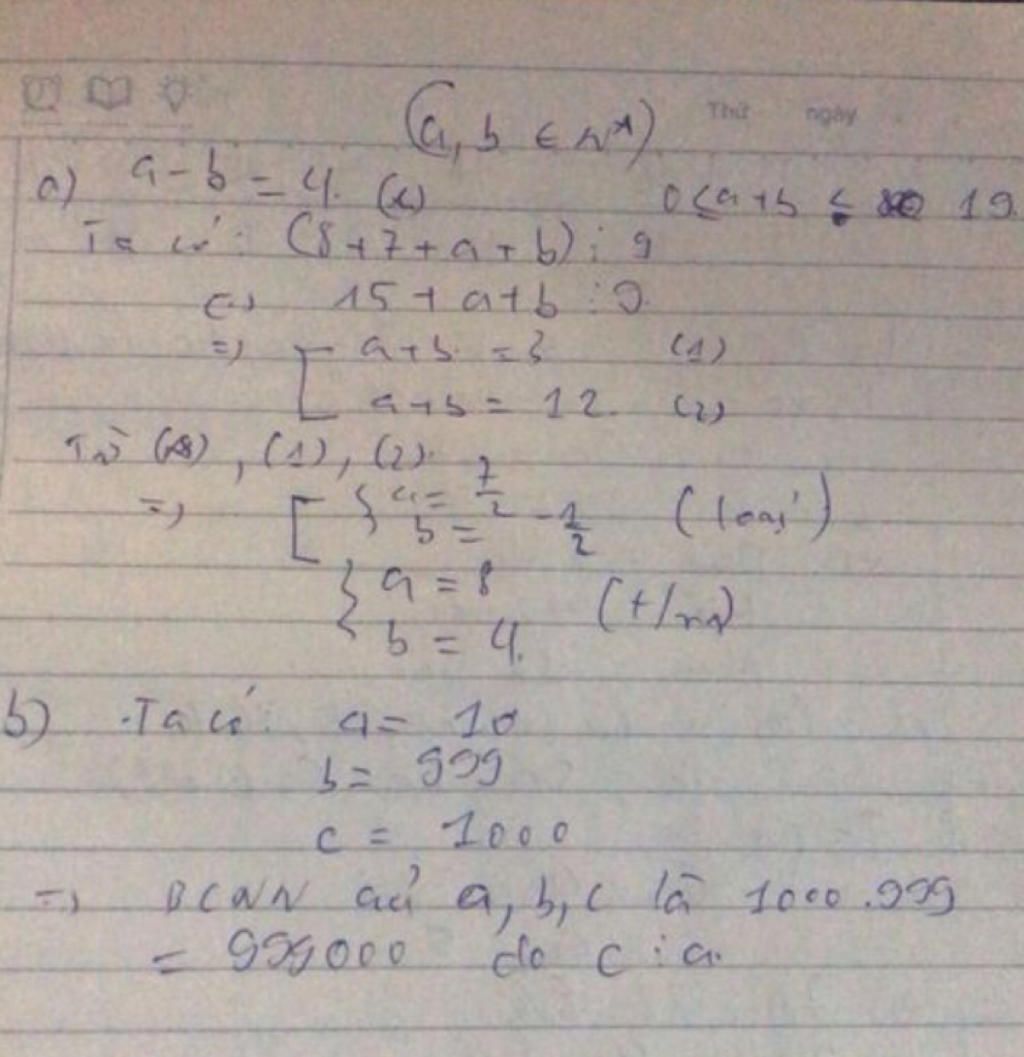 Thứ ngày
(a, b ∈ N*)
a) a - b = 4. (*) 0 ≤ a + b ≤ 19
Ta có: (8 + 7 + a + b) ⋮ 9
<=> 15 + a + b ⋮ 9.
=> [ a + b = 3 (1)
a + b = 12. (2)
Từ (*), (1), (2).
=> [ { a = 7/2
b = -1/2 (loại)
{ a = 8
b = 4. (t/m)
b) Ta có: a = 10
b = 999
c = 1000
=> BCNN của a, b, c là 1000.999
= 999000 do c ⋮ a.